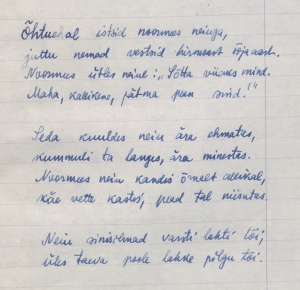 Õhtuehal istsid noormees neiuga,
juttu nemad vestsid hirmsast sõja aast.
Noormees ütles neiul: „Sõtta viiaks mind.
Maha, kallikene, jätma pean sind!"
Seda kuuldes neiu ära ehmatas,
kummuli ta langes, ära minestes.
Noormees neiu kandis õrnalt
käe vette kastes, pead tal niisutas.
Neiu sinisilmad varsti lahti lõi,
üles taeva poole lahke pilgu lõi.